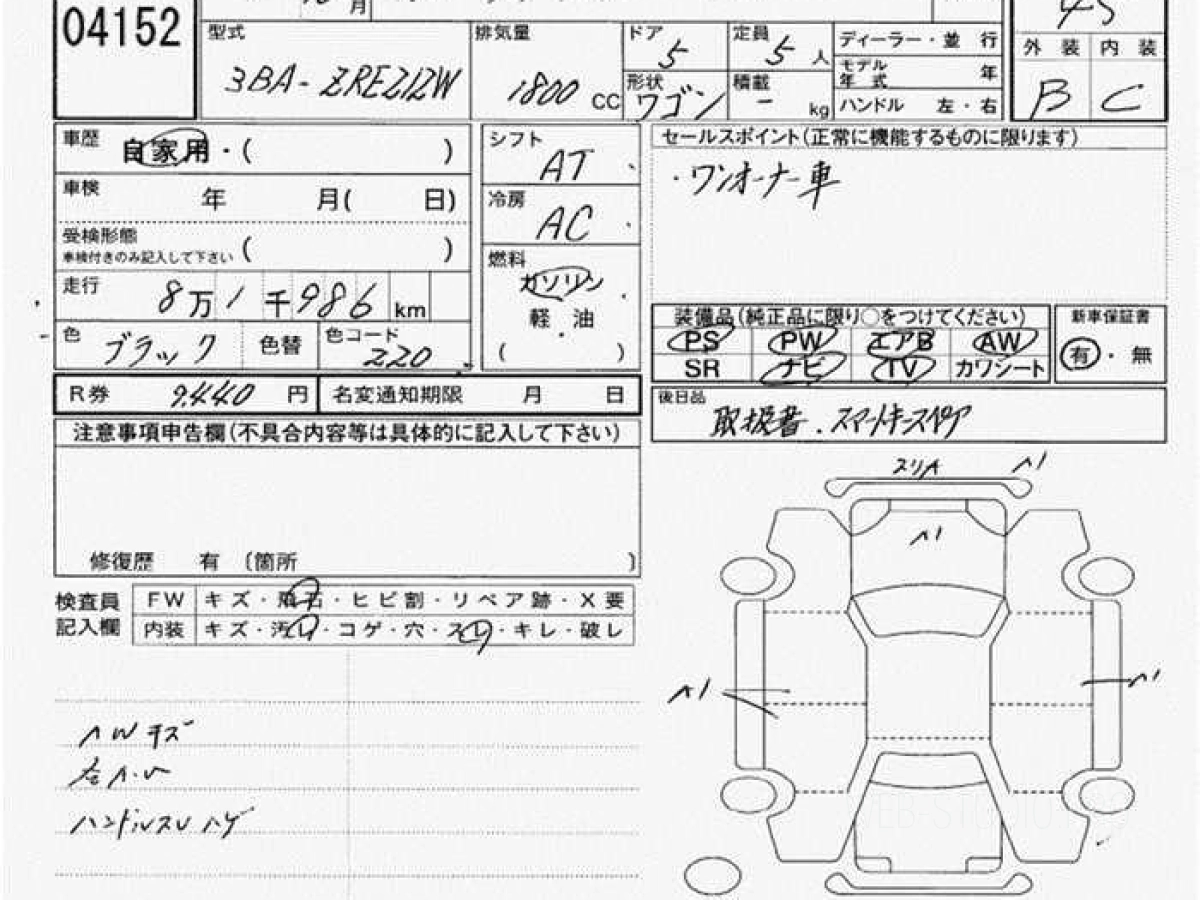 月
04152
型式 排気量 ドア 5 定員 5 人 ディーラー・並 行
3BA-ZRE212W 1800 CC 形状 ワゴン 積載 - kg
モデル年式 年
ハンドル 左・右
45
外 装 内 装
B C
車歴 自家用・( )
車検 年 月( 日)
受検形態 ( )
車検付きのみ記入して下さい
走行 8万1千986 km
色 ブラック 色替 色コード 220
シフト AT
冷房 AC
燃料 ガソリン
軽 ・ 油
( )
セールスポイント(正常に機能するものに限ります)
・ワンオーナー車
装備品(純正品に限り○をつけてください)
PS PW エアB AW
SR ナビ TV カワシート
新車保証書
有・無
R券 9,440 円 名変通知期限 月 日
後日品
取扱書.スマートキースペア
注意事項申告欄(不具合内容等は具体的に記入して下さい)
修復歴 有 〔箇所 〕
検査員記入欄
FW キズ・飛石・ヒビ割・リペア跡・X要
内装 キズ・汚レ・コゲ・穴・スレ・キレ・破レ
AWキズ
ハンドルスレ ハゲ
スリA A1
A1
A1
A1
WEB-STUDIO